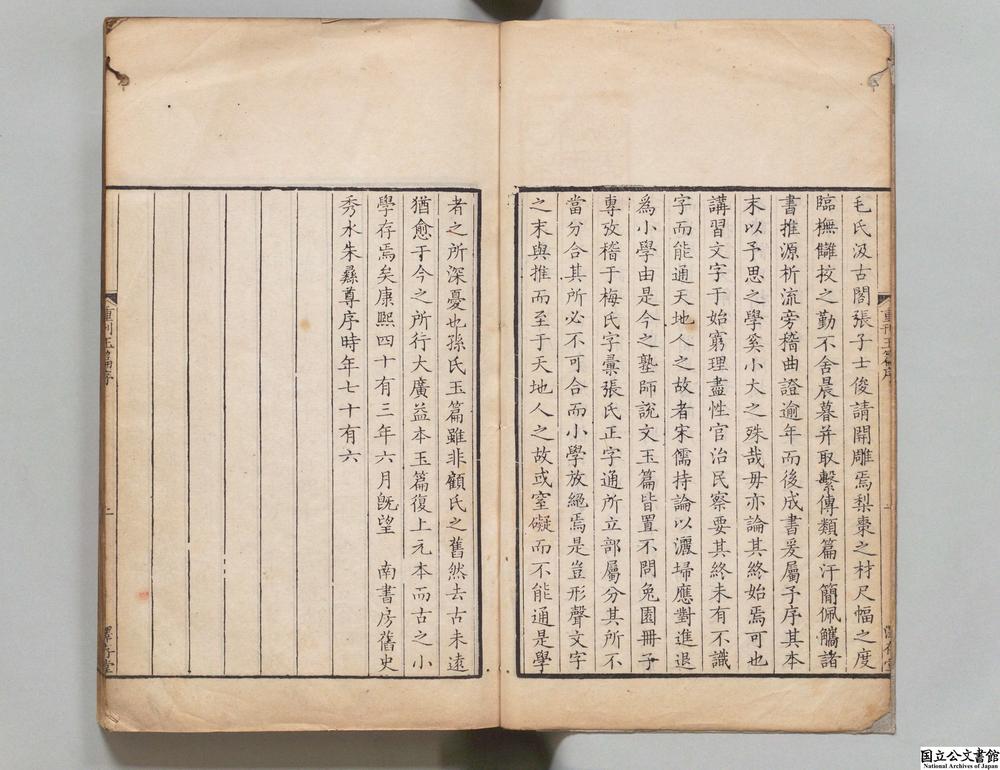 毛氏汲古閣張子士俊請開雕焉梨棗之材尺幅之度
臨橅讎挍之勤不舍晨暮并取繫傳類篇汗簡佩觿諸
書推源析流旁稽曲證逾年而後成書爰屬予序其本
末以予思之學奚小大之殊哉毋亦論其終始焉可也
講習文字于始窮理盡性官治民察要其終未有不識
字而能通天地人之故者宋儒持論以灑埽應對進退
為小學由是今之塾師說文玉篇皆置不問兔園冊子
專攷稽于梅氏字彙張氏正字通所立部屬分其所不
當分合其所必不可合而小學放絕焉是豈形聲文字
之末與推而至于天地人之故或窒礙而不能通是學
者之所深憂也孫氏玉篇雖非顧氏之舊然去古未遠
猶愈于今之所行大廣益本玉篇復上元本而古之小
學存焉矣康熙四十有三年六月旣望 南書房舊史
秀水朱彝尊序時年七十有六
重刊玉篇序
澤存堂
国立公文書館
National Archives of Japan